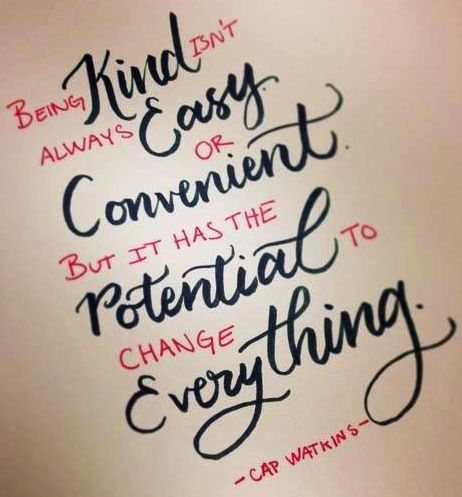 BEING Kind ISN'T
ALWAYS Easy
OR
Convenient.
BUT IT HAS THE
Potential TO
CHANGE
Everything.
-CAP WATKINS-